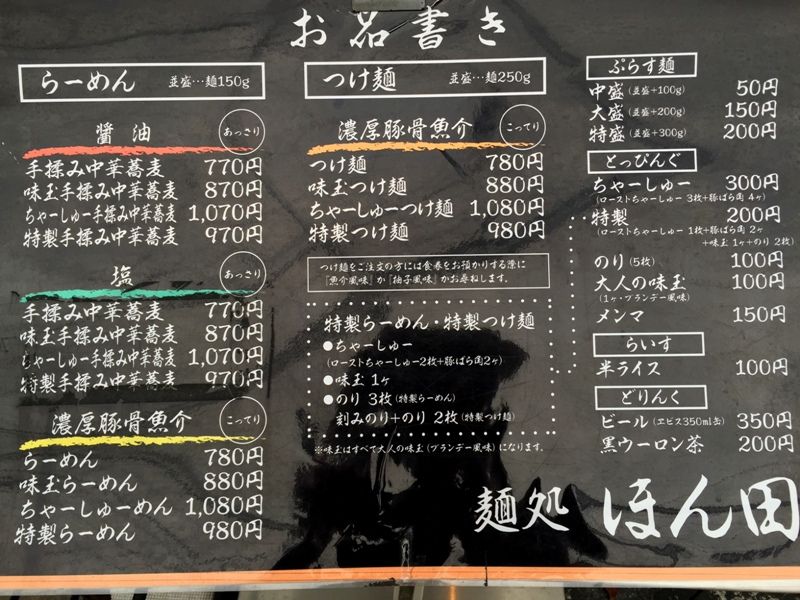 お品書き
らーめん 並盛…麺150g
醤油 あっさり
手揉み中華蕎麦 770円
味玉手揉み中華蕎麦 870円
ちゃーしゅー手揉み中華蕎麦 1,070円
特製手揉み中華蕎麦 970円
塩 あっさり
手揉み中華蕎麦 770円
味玉手揉み中華蕎麦 870円
ちゃーしゅー手揉み中華蕎麦 1,070円
特製手揉み中華蕎麦 970円
濃厚豚骨魚介 こってり
らーめん 780円
味玉らーめん 880円
ちゃーしゅーめん 1,080円
特製らーめん 980円
つけ麺 並盛…麺250g
濃厚豚骨魚介 こってり
つけ麺 780円
味玉つけ麺 880円
ちゃーしゅーつけ麺 1,080円
特製つけ麺 980円
つけ麺をご注文の方には食券をお預かりする際に
『魚介風味』か『柚子風味』かお尋ねします。
特製らーめん・特製つけ麺
●ちゃーしゅー
(ローストちゃーしゅー2枚+豚ばら肉2ヶ)
●味玉 1ヶ
●のり 3枚(特製らーめん)
刻みのり+のり 2枚(特製つけ麺)
※味玉はすべて大人の味玉(ブランデー風味)になります。
ぷらす麺
中盛(並盛+100g) 50円
大盛(並盛+200g) 150円
特盛(並盛+300g) 200円
とっぴんぐ
ちゃーしゅー 300円
(ローストちゃーしゅー 3枚+豚ばら肉 4ヶ)
特製 200円
(ローストちゃーしゅー 1枚+豚ばら肉 2ヶ
+味玉 1ヶ+のり 2枚)
のり(5枚) 100円
大人の味玉 100円
(1ヶ・ブランデー風味)
メンマ 150円
らいす
半ライス 100円
どりんく
ビール(エビス350ml缶) 350円
黒ウーロン茶 200円
麺処 ほん田